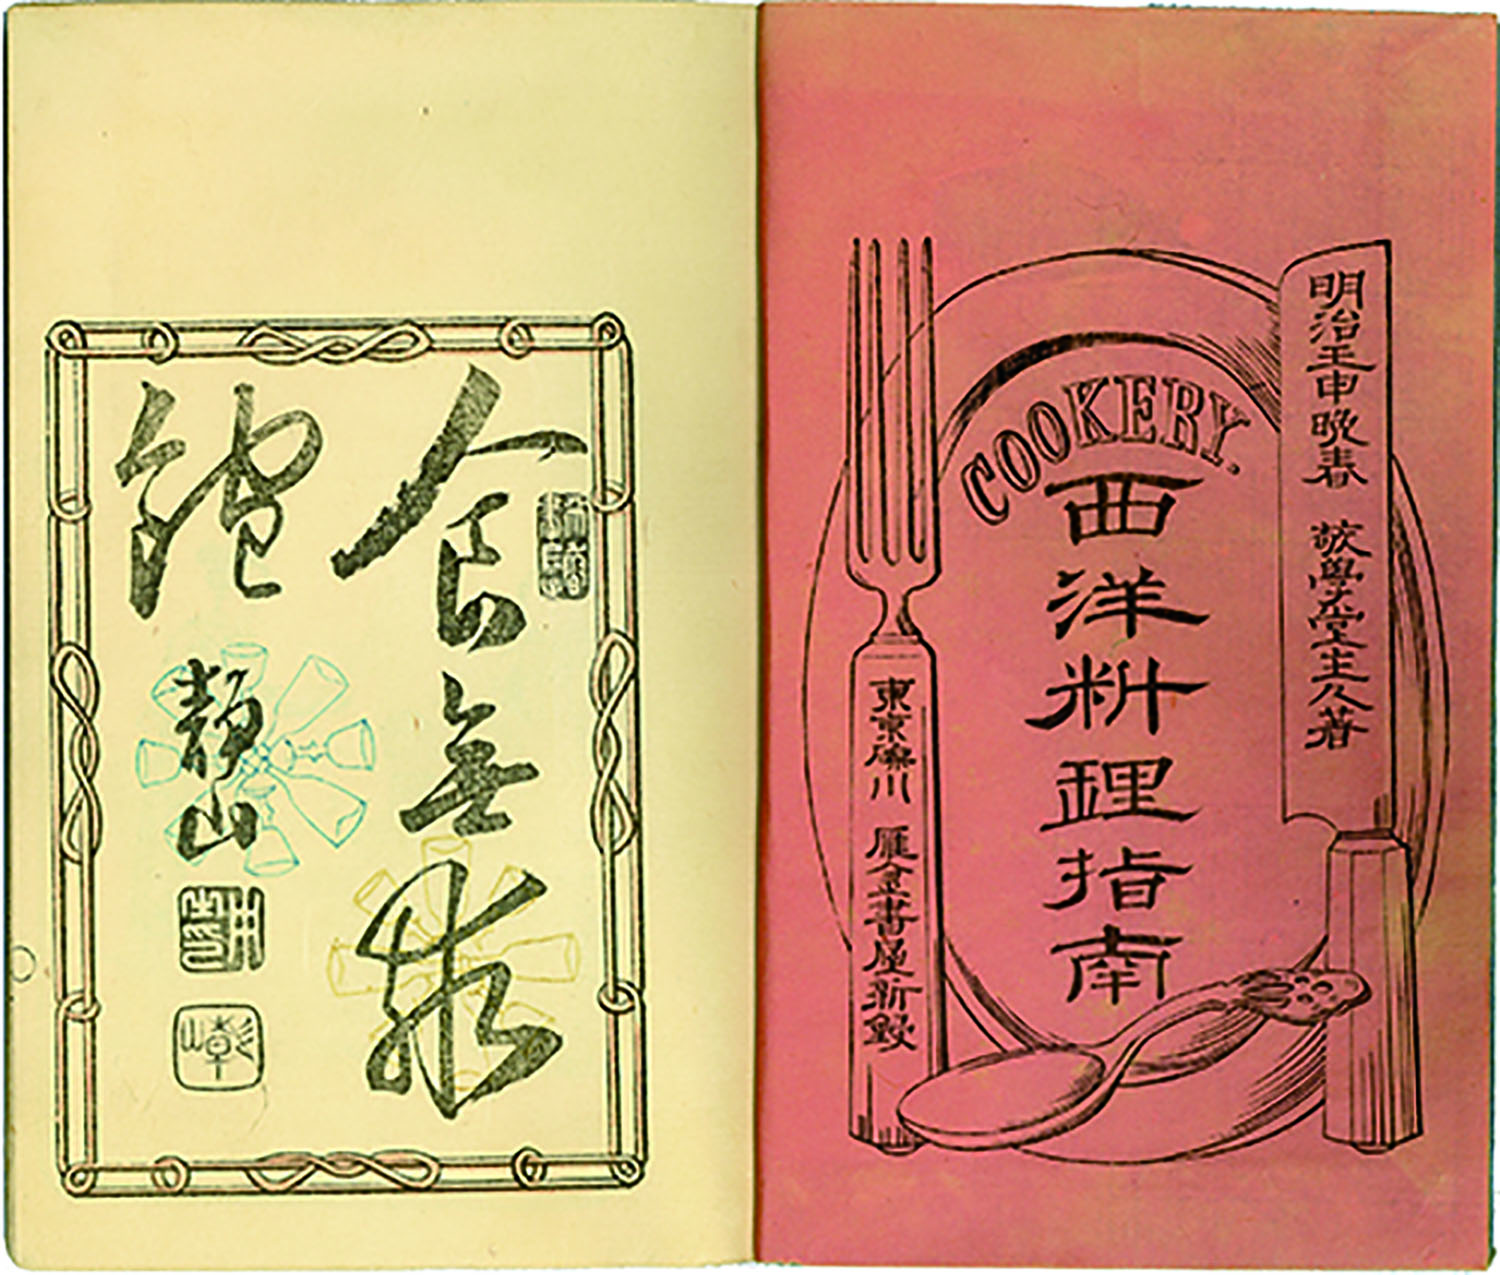 明治壬申晩春 敬學堂主人著
COOKERY.
西洋料理指南
東京礫川 雁金書屋新鐫
食無求
飽
靜山